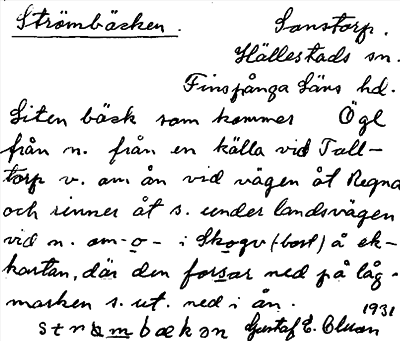 Strömbäcken. Sanstorp.
Hällestads sn.
Finspånga läns hd.
Liten bäck som kommer Ögl
från n. från en källa vid Tall-
torp v. om ån vid vägen åt Regna
och rinner åt s. under landsvägen
vid n. om -o- i Skogv (bost) å ek-
kartan, där den forsar ned på låg-
marken s. ut. ned i ån.
1931
strömbækən Gustaf E.